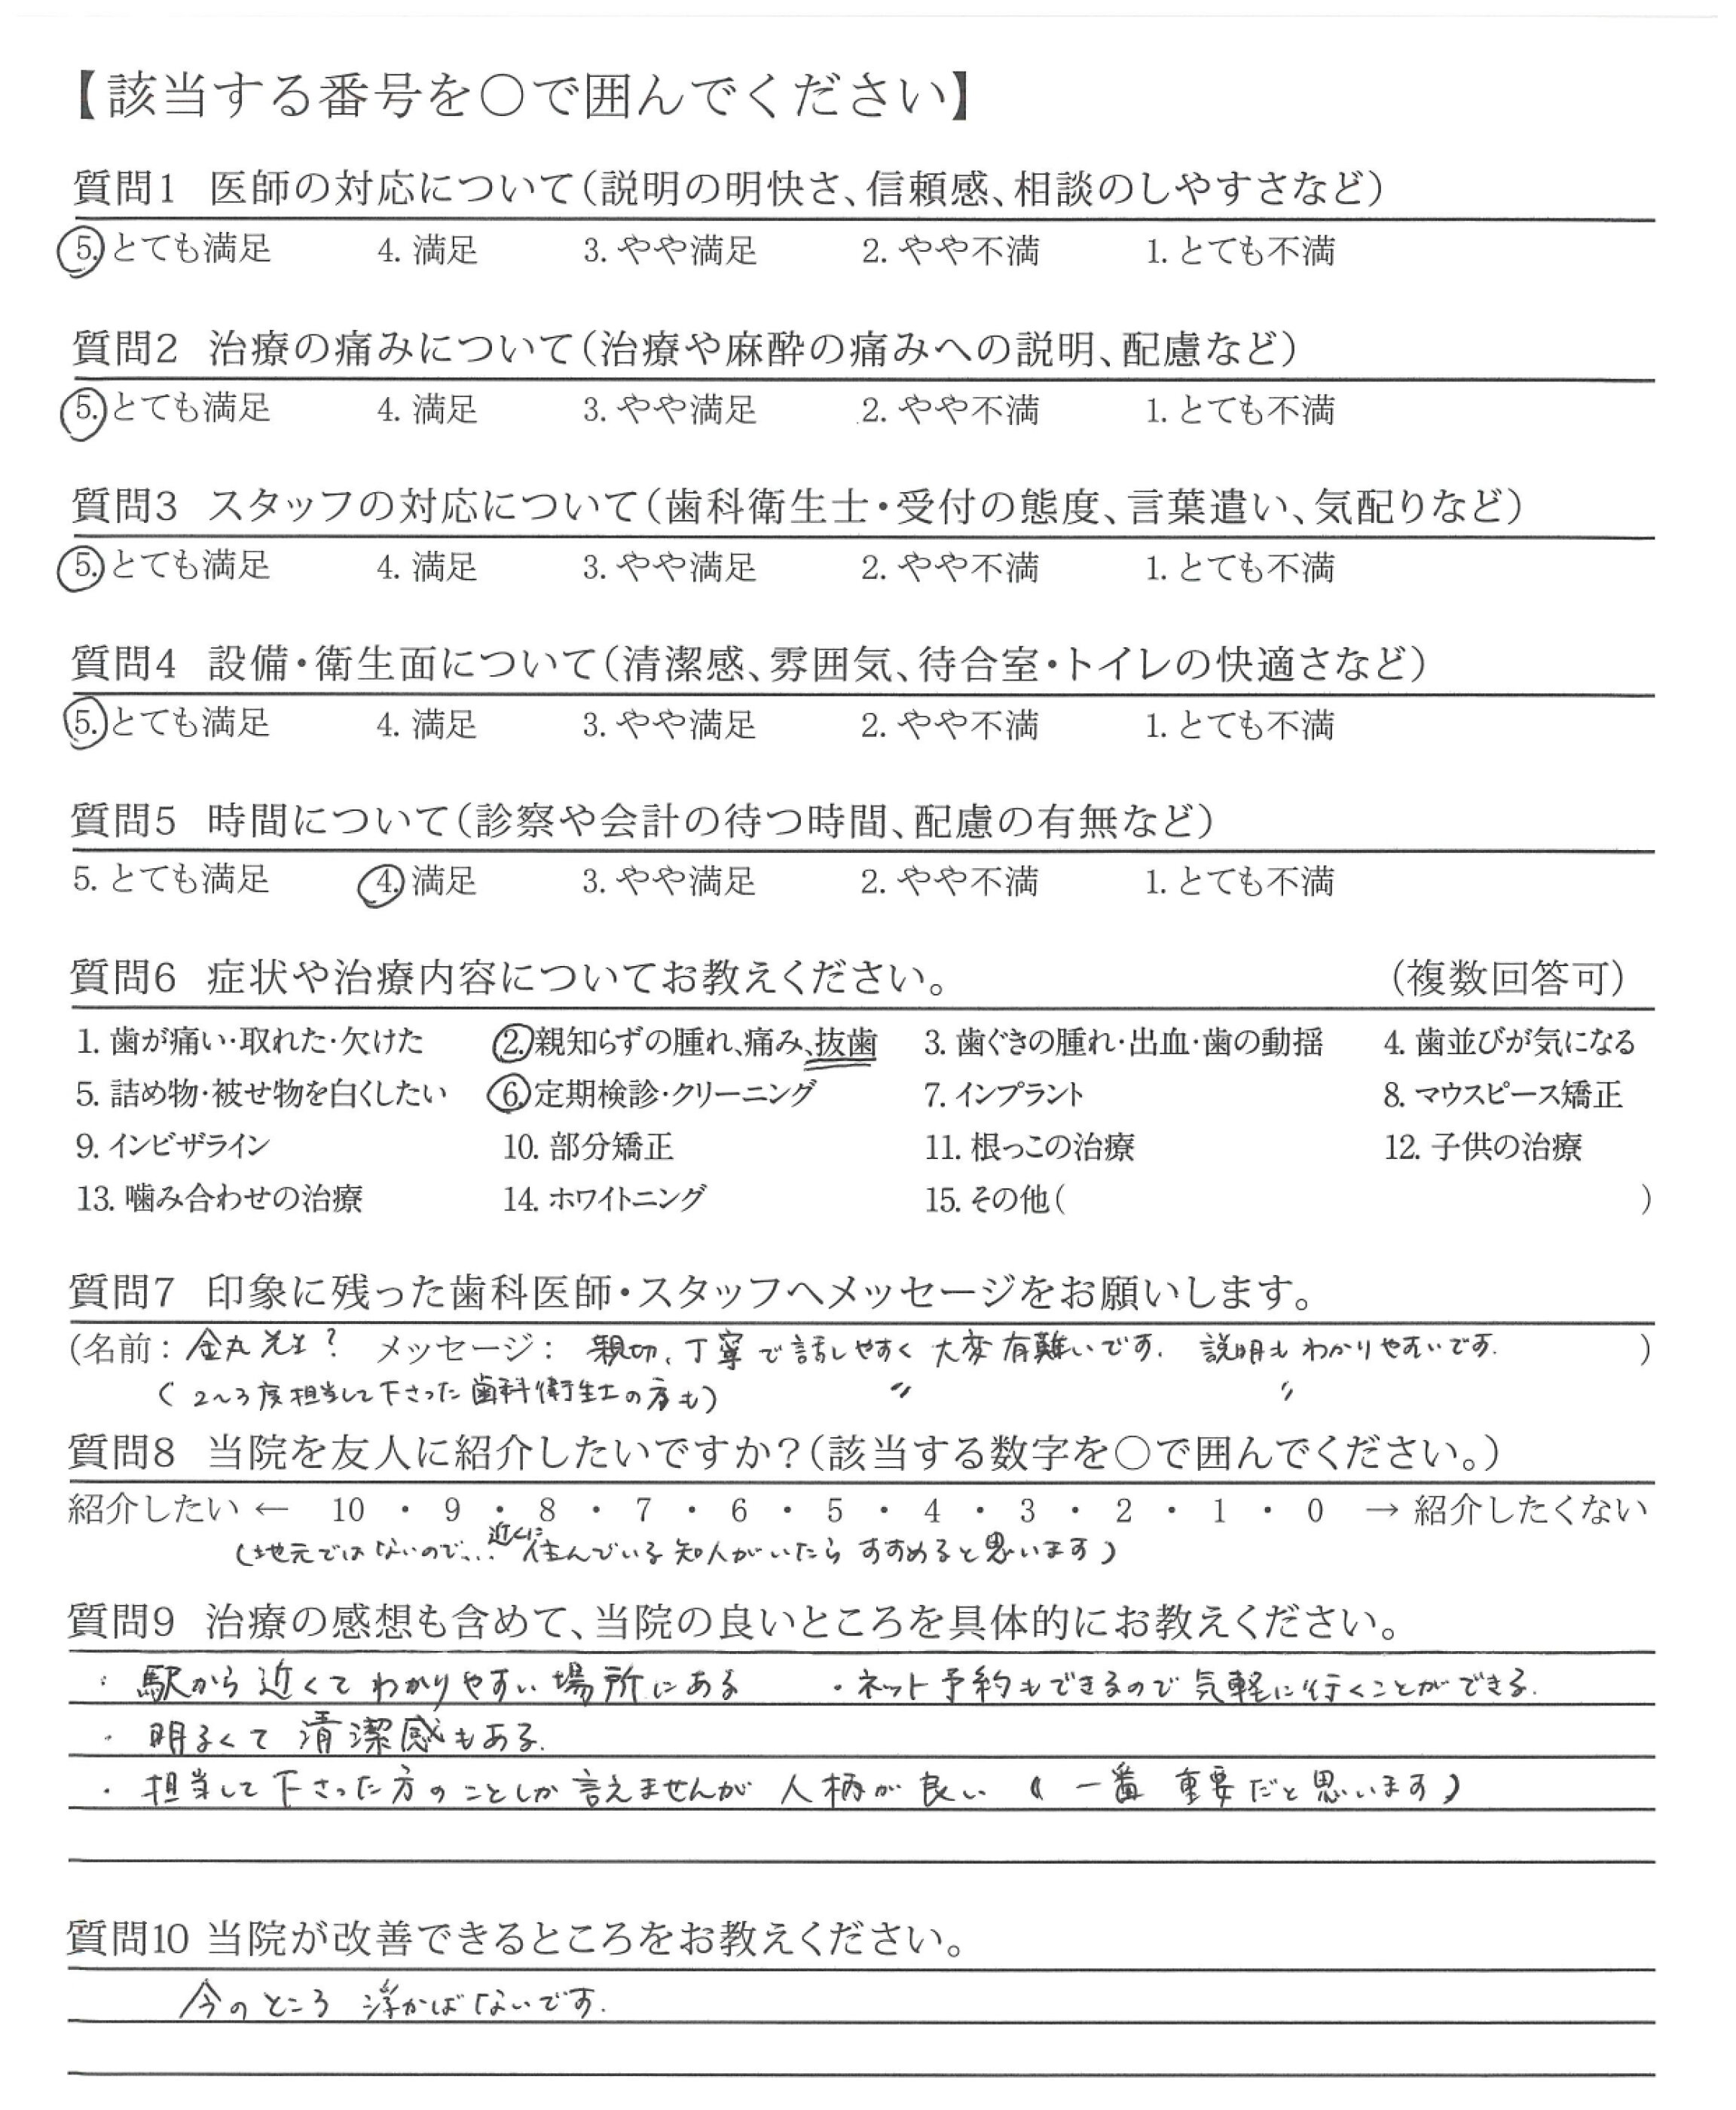 【該当する番号を○で囲んでください】
質問1 医師の対応について(説明の明快さ、信頼感、相談のしやすさなど)
5. とても満足 4. 満足 3. やや満足 2. やや不満 1. とても不満
質問2 治療の痛みについて(治療や麻酔の痛みへの説明、配慮など)
5. とても満足 4. 満足 3. やや満足 2. やや不満 1. とても不満
質問3 スタッフの対応について(歯科衛生士・受付の態度、言葉遣い、気配りなど)
5. とても満足 4. 満足 3. やや満足 2. やや不満 1. とても不満
質問4 設備・衛生面について(清潔感、雰囲気、待合室・トイレの快適さなど)
5. とても満足 4. 満足 3. やや満足 2. やや不満 1. とても不満
質問5 時間について(診察や会計の待つ時間、配慮の有無など)
5. とても満足 4. 満足 3. やや満足 2. やや不満 1. とても不満
質問6 症状や治療内容についてお教えください。 (複数回答可)
1. 歯が痛い・取れた・欠けた 2. 親知らずの腫れ、痛み、抜歯 3. 歯ぐきの腫れ・出血・歯の動揺 4. 歯並びが気になる
5. 詰め物・被せ物を白くしたい 6. 定期検診・クリーニング 7. インプラント 8. マウスピース矯正
9. インビザライン 10. 部分矯正 11. 根っこの治療 12. 子供の治療
13. 噛み合わせの治療 14. ホワイトニング 15. その他( )
質問7 印象に残った歯科医師・スタッフへメッセージをお願いします。
(名前: 金丸先生? メッセージ: 親切、丁寧で話しやすく大変有難いです. 説明もわかりやすいです. )
(2~3度担当して下さった歯科衛生士の方も) 〃 〃
質問8 当院を友人に紹介したいですか?(該当する数字を○で囲んでください。)
紹介したい ← 10 ・ 9 ・ 8 ・ 7 ・ 6 ・ 5 ・ 4 ・ 3 ・ 2 ・ 1 ・ 0 → 紹介したくない
(地元ではないので... 近くに住んでいる知人がいたらすすめると思います)
質問9 治療の感想も含めて、当院の良いところを具体的にお教えください。
・駅から近くてわかりやすい場所にある ・ネット予約もできるので気軽に行くことができる.
・明るくて清潔感もある.
・担当して下さった方のことしか言えませんが人柄が良い (一番重要だと思います)
質問10 当院が改善できるところをお教えください。
今のところ浮かばないです.